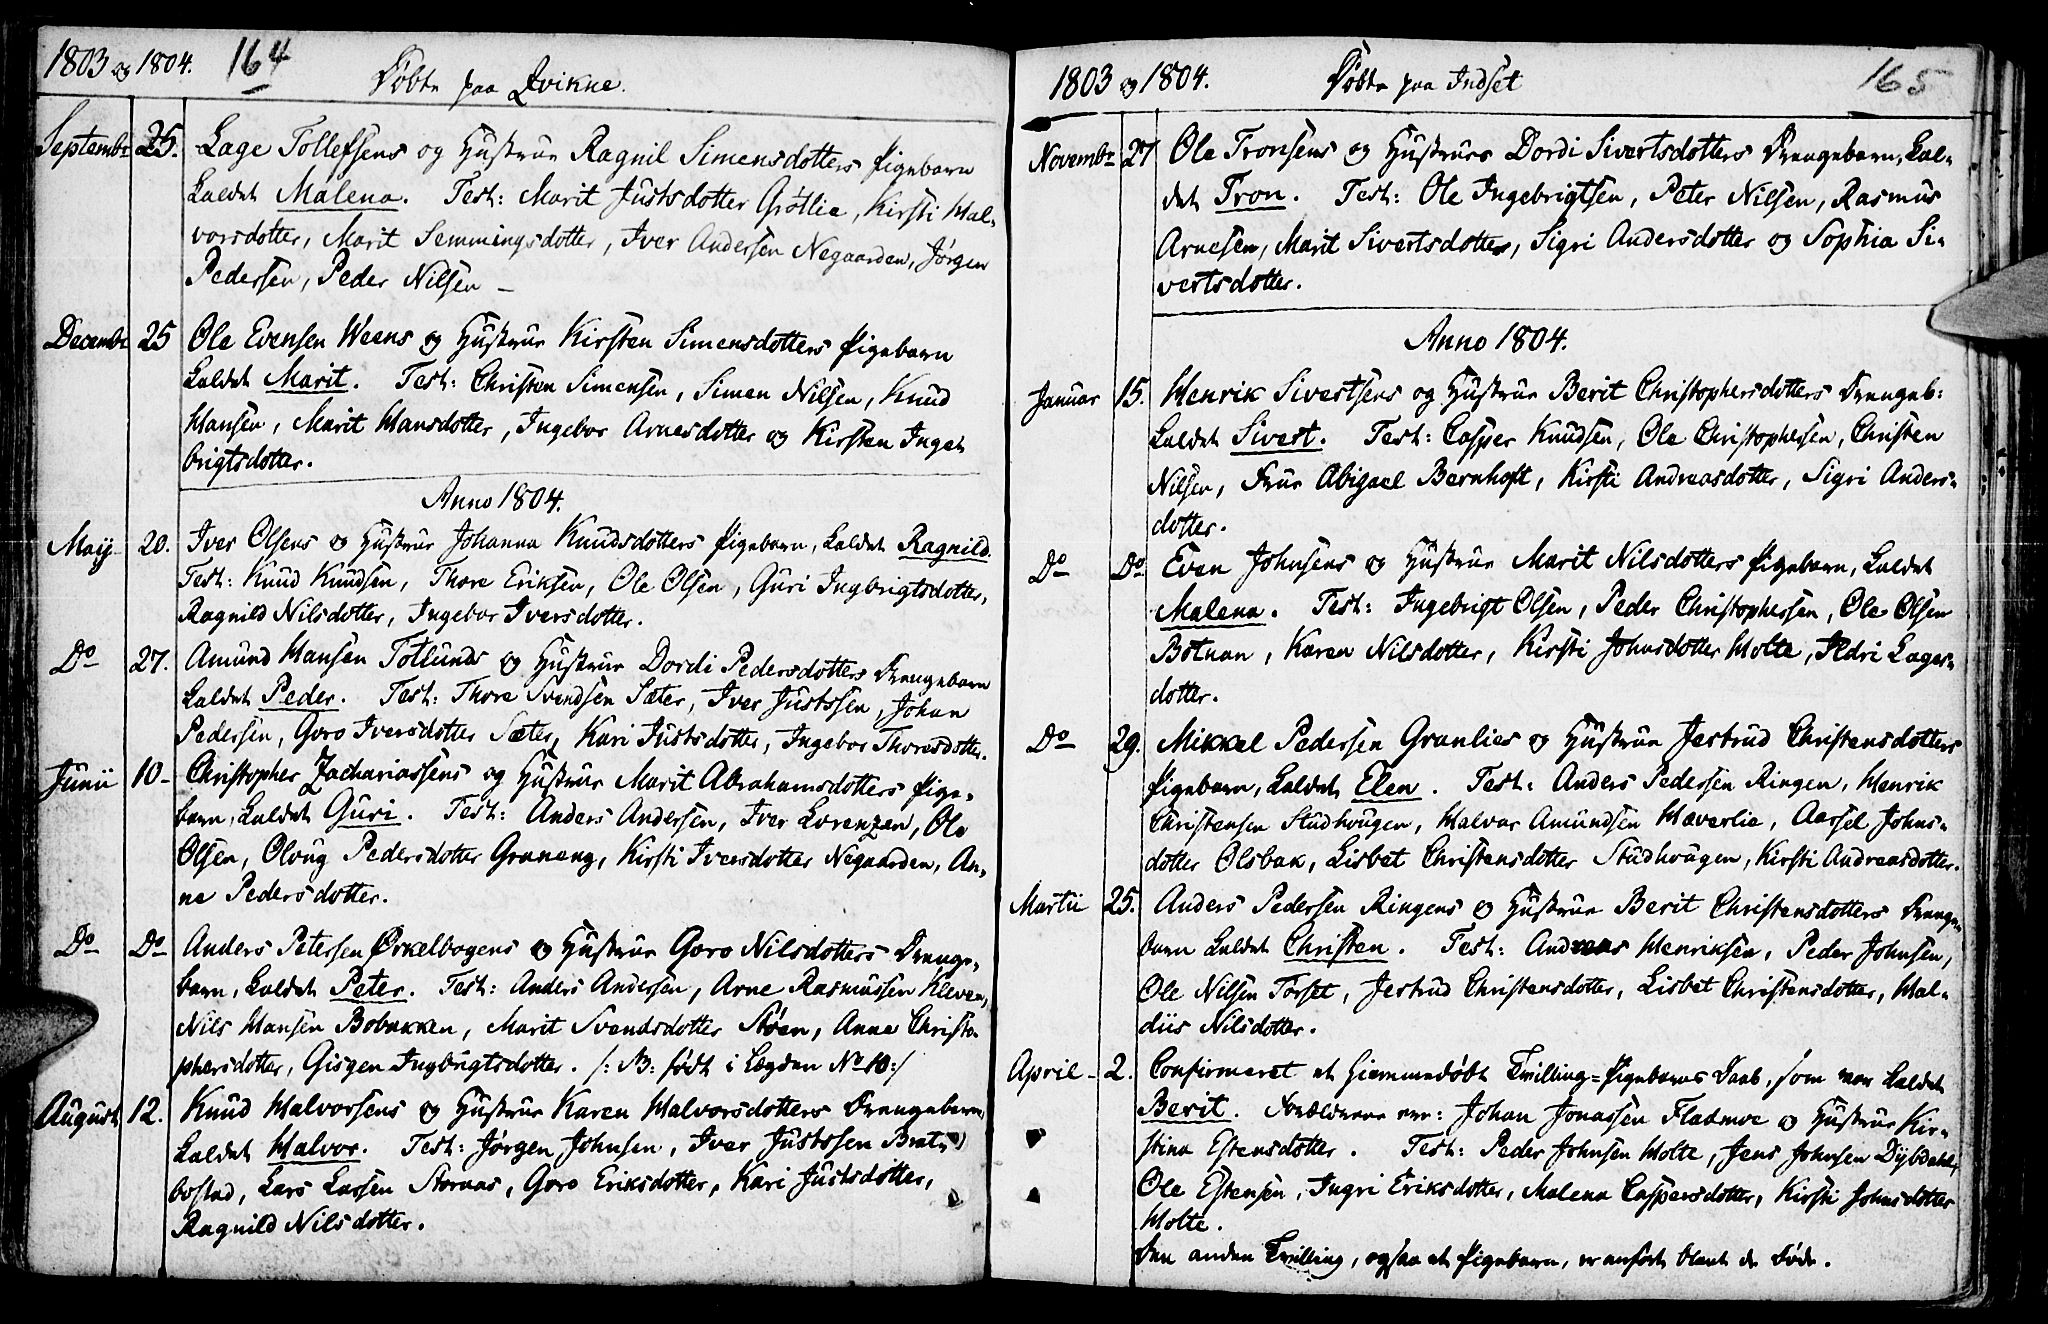 1803 og 1804. 164
Døbte paa Qvikne.
Septembr 25. Lage Tollefsens og Hustrue Ragnil Simensdotters Pigebarn
kaldet Malena. Test: Marit Justsdotter Grøtlie, Kirsti Hal-
vorsdotter, Marit Semmingsdotter, Iver Andersen Negaarden, Jørgen
Pedersen, Peder Nilsen –
Decembr 25 Ole Evensen Weens og Hustrue Kirsten Simensdotters Pigebarn
kaldet Marit. Test: Christen Simensen, Simen Nilsen, Knud
Hansen, Marit Hansdotter, Ingebor Arnesdotter og Kirsten Inge-
brigtsdotter.
Anno 1804.
Maij 20. Iver Olsens og Hustrue Johanna Knudsdotters Pigebarn, kaldet Ragnild.
Test: Knud Knudsen, Thore Eriksen, Ole Olsen, Guri Ingbrigtsdotter,
Ragnild Nilsdotter, Ingebor Iversdotter.
Do 27. Amund Hansen Totlunds og Hustrue Dordi Pedersdotters Drengebarn
kaldet Peder. Test: Thore Svendsen Sæter, Iver Justssen, Johan
Pedersen, Goro Iversdotter Sæter, Kari Justsdotter, Ingebor Thoresdotter.
Junii 10 – Christopher Zachariassens og Hustrue Marit Abrahamsdotters Pige-
barn, kaldet Guri. Test: Anders Andersen, Iver Lorenzen, Ole
Olsen, Olvug Pedersdotter Graneng, Kirsti Iversdotter Negaarden, An-
ne Pedersdotter.
Do Do Anders Petersen Ørkelbogens og Hustrue Goro Nilsdotters Drenge-
barn, kaldet Peter. Test: Anders Andersen, Arne Rasmussen Kleven,
Nils Hansen Bobakken, Marit Svendsdotter Støen, Anne Christo-
phersdotter, Gisgen Ingbrigtsdotter. /: NB: født i Lægden No 10 :/
August 12. Knud Halvorsens og Hustrue Karen Halvorsdotters Drengebarn,
kaldet Halvor. Test: Jørgen Johnsen, Iver Justssen Brat-
bostad, Lars Larsen Stornæs, Goro Eriksdotter, Kari Justsdotter,
Ragnild Nilsdotter.
1803 og 1804. Døbte paa Indset 165
Novembr 27 Ole Tronsens og Hustrues Dordi Sivertsdotters Drengebarn, kal-
det Tron. Test: Ole Ingebrigtsen, Peter Nilsen, Rasmus
Arnesen, Marit Sivertsdotter, Sigri Andersdotter og Sophia Si-
vertsdotter.
Anno 1804.
Januar 15. Henrik Sivertsens og Hustrue Berit Christophersdotters Drengeb:
kaldet Sivert. Test: Casper Knudsen, Ole Christophersen, Christen
Nilsen, Frue Abigael Bernhoft, Kirsti Andreasdotter, Sigri Anders-
dotter.
Do Do Even Johnsens og Hustrue Marit Nilsdotters Pigebarn, kaldet
Malena. Test: Ingebrigt Olsen, Peder Christophersen, Ole Olsen
Botnan, Karen Nilsdotter, Kirsti Johnsdotter Holte, Ildri Lages-
dotter.
Do 29. Mikkel Pedersen Granlies og Hustrue Jertrud Christensdotters
Pigebarn, kaldet Elen. Test: Anders Pedersen Ringen, Henrik
Christensen Studhougen, Halvor Amundsen Hæverlie, Aasel Johns-
dotter Olsbak, Lisbet Christensdotter Studhougen, Kirsti Andreasdotter.
Martii 25. Anders Pedersen Ringens og Hustrue Berit Christensdotters Drenge-
barn kaldet Christen. Test: Andreas Henriksen, Peder Johnsen,
Ole Nilsen Torset, Jertrud Christensdotter, Lisbet Christensdotter, Hal-
diis Nilsdotter.
April – 2. Confirmeret et hiemmedøbt Tvilling=Pigebarns Daab, som var kaldet
Berit. Forældrene ere: Johan Jonassen Fladmoe og Hustrue Kir-
stina Estensdotter. Test: Peder Johnsen Holte, Jens Johnsen Dybdahl,
Ole Estensen, Ingri Eriksdotter, Malena Caspersdotter, Kirsti Johnsdotter
Holte.
Den anden Tvilling, ogsaa et Pigebarn, er anført blant de Døde.